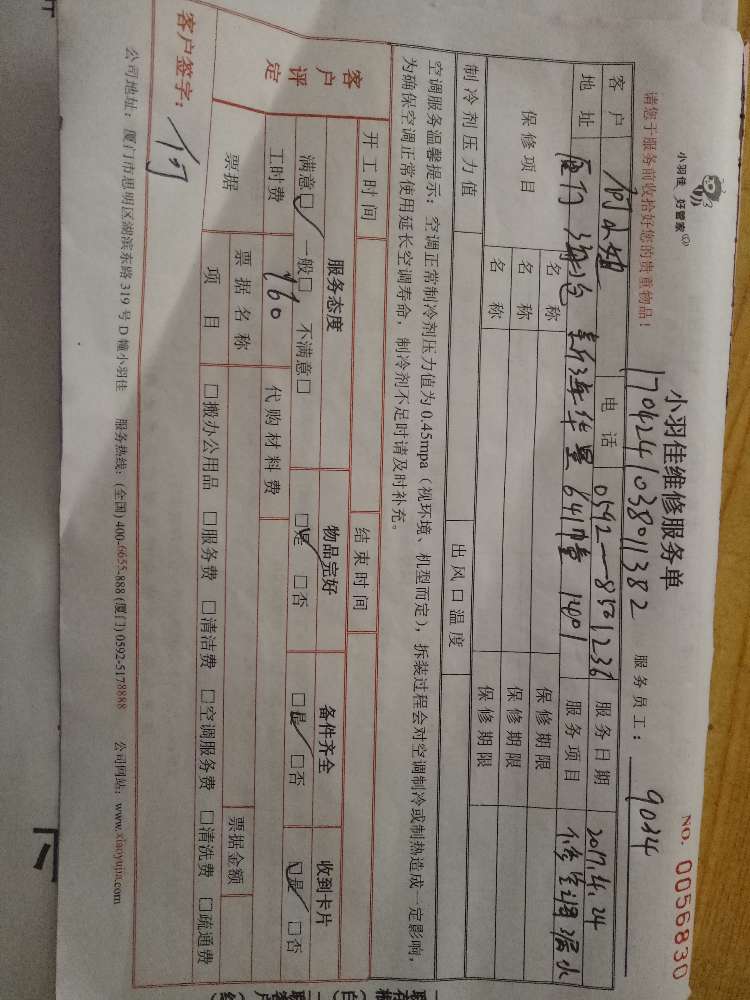 小羽佳 好管家
小羽佳维修服务单
NO. 0056830
1704241038011382
请您于服务前收拾好您的贵重物品！
服务员工： 9034
客户 何小姐 电话 0592-8501236 服务日期 2017.4.24
地址 厦门 海沧 641幢 1201 服务项目 漏水
保修项目 名称 保修期限
名称 保修期限
名称 保修期限
制冷剂压力值 出风口温度
空调服务温馨提示：空调正常制冷剂压力值为0.45mpa（视环境、机型而定），拆装过程会对空调制冷或制热造成一定影响，
为确保空调正常使用延长空调寿命，制冷剂不足时请及时补充。
开工时间 结束时间
客户评定 服务态度 物品完好 备件齐全 收到卡片
满意□ 一般□ 不满意□ □是 □否 □是 □否 □是 □否
工时费 160 代购材料费
票据 票据名称 票据金额
项目 □搬办公用品 □服务费 □清洁费 □空调服务费 □清洗费 □疏通费
客户签字： 何
公司地址：厦门市思明区湖滨东路319号D幢小羽佳 服务热线：(全国) 400-6655-888 (厦门) 0592-5178888 公司网站：www.xiaoyujia.com